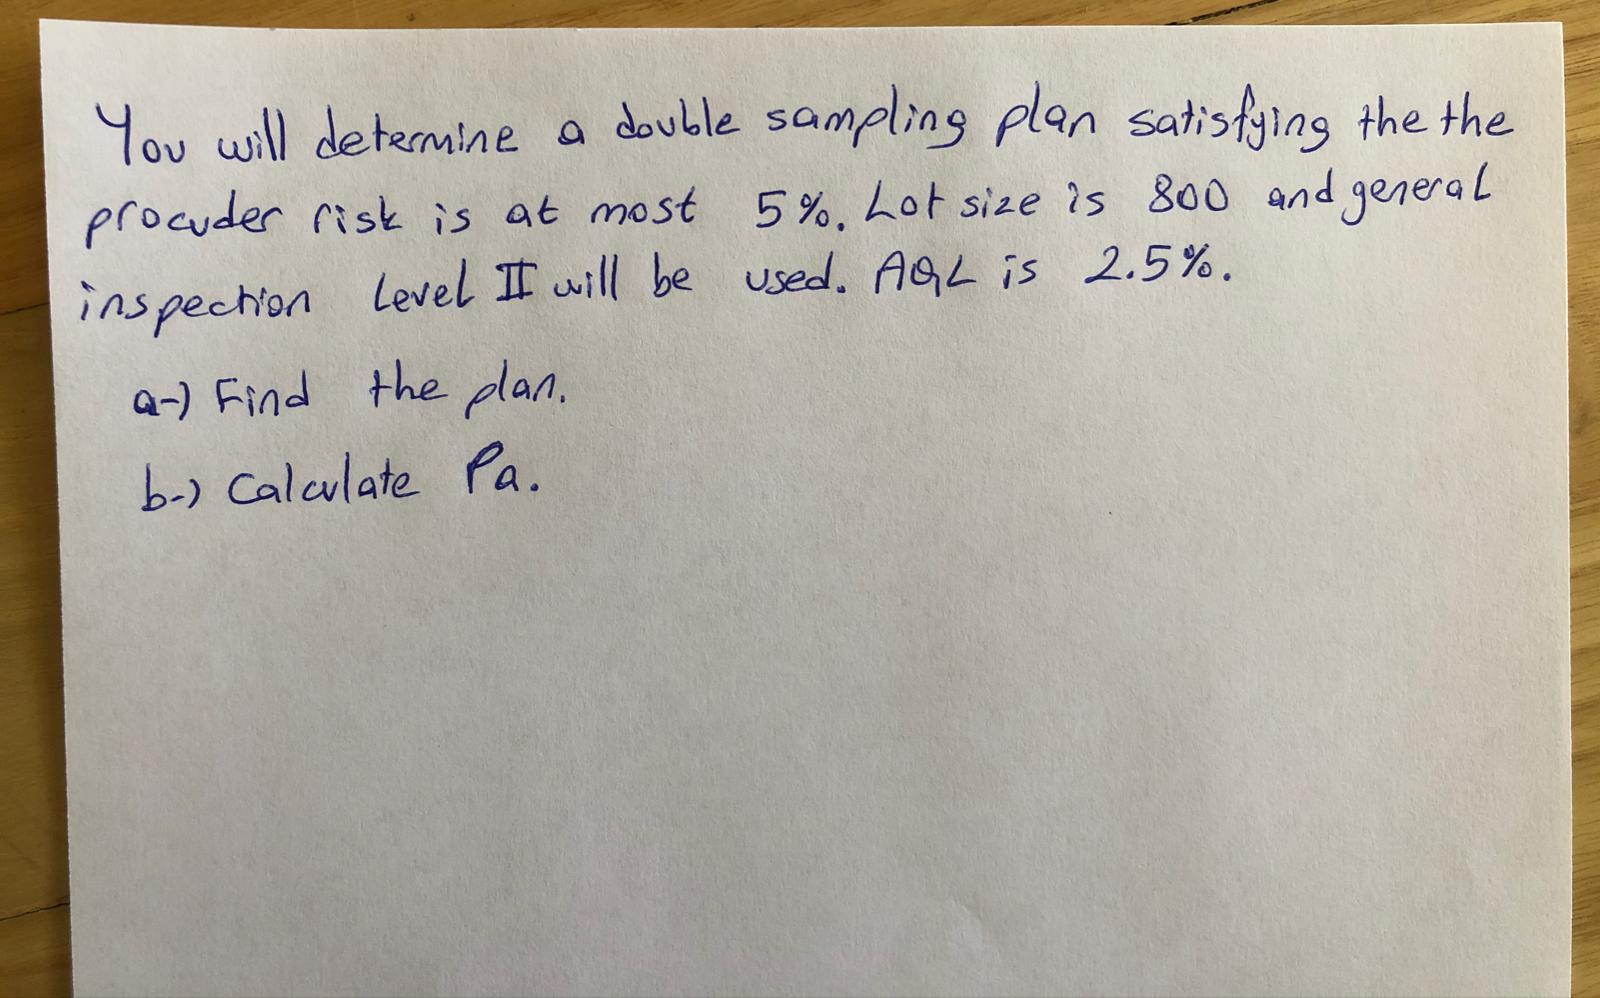 You will determine a double sampling plan satisfying the the
procuder risk is at most 5%. Lot size is 800 and general
inspection level II will be used. AQL is 2.5%.
a-) Find the plan.
b-) Calculate Pa.